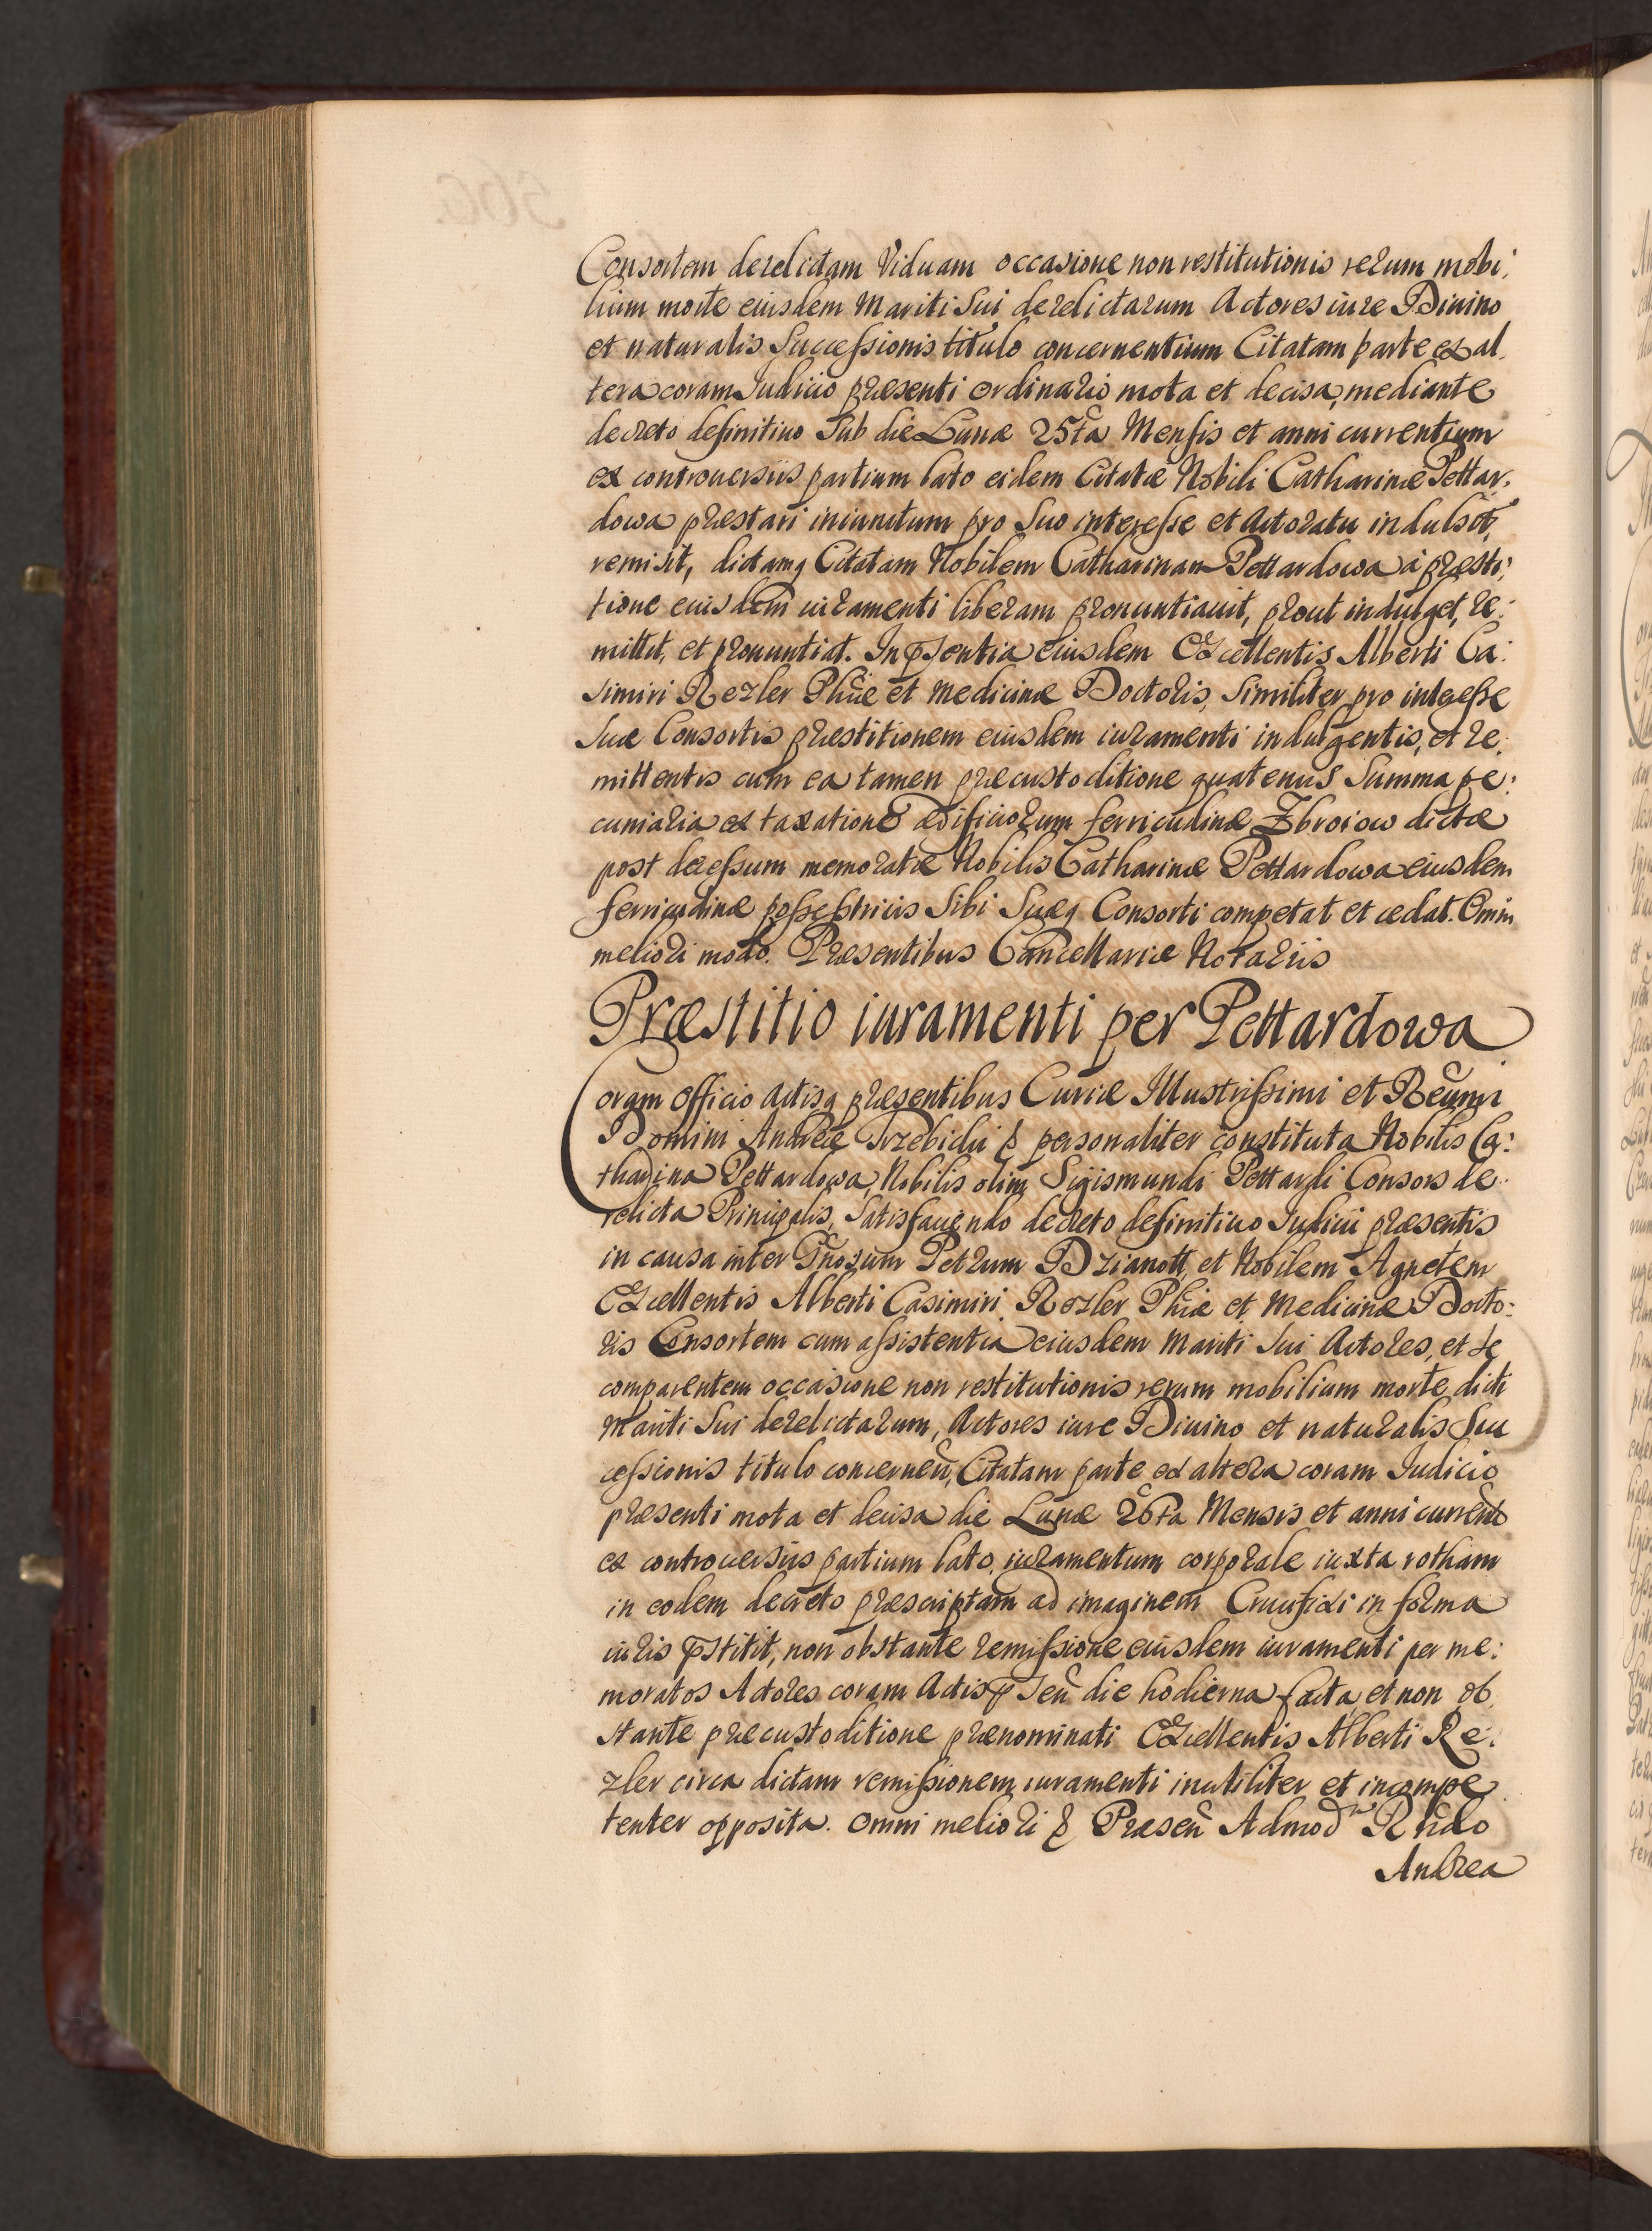 Consortem derelictam Viduam occasione non restitutionis rerum mobi:
lium morte eiusdem Mariti Sui derelictarum Actores iure Diuino
et naturalis Successionis titulo concernentium Citatam parte ex al
tera coram Judicio præsenti ordinario mota et decisa, mediante
decreto definitiuo Sub die Lunæ 25ta Mensis et anni currentium
ex controuersiis partium lato eidem Citatæ Nobili Catharinæ Pettar:
dowa præstari iniunctum pro Suo interesse et Actoratu indulsit,
remisit, dictamq Citatam Nobilem Catharinam Pettardowa à præsti:
tione eiusdem iuramenti liberam pronuntiauit, prout indulget, re:
mittit, et pronuntiat. In pñsentia eiusdem Excellentis Alberti Ca:
simiri Rezler Phiæ et Medicinæ Doctoris, Similiter pro interesse
Suæ Consortis præstitionem eiusdem iuramenti indulgentis, et re:
mittentis cum ea tamen præcustoditione quatenus Summa pe:
cuniaria ex taxatione ædificiorum ferricudinæ Zbroiow dictæ
post decessum memoratæ Nobilis Catharinæ Pettardowa eiusdem
ferricudinæ possestricis Sibi Suæq Consorti competat et cedat. Omni
meliori modo. Præsentibus Cancellariæ Notariis
Præstitio iuramenti per Pettardowa
Coram Officio Actisq præsentibus Curiæ Illustrissimi et Reuẽmi
Domini Andreæ Trzebicki & personaliter constituta Nobilis Ca:
tharina Pettardowa, Nobilis olim Sigismundi Pettardi Consors de:
relicta Principalis, Satisfaciendo decreto definitiuo Judicii præsentis
in causa inter Gñosum Petrum Dzianott, et Nobilem Agnetem
Excellentis Alberti Casimiri Rezler Phiæ et Medicinæ Docto:
ris Consortem cum assistentia eiusdem Mariti Sui Actores, et Se
comparentem occasione non restitutionis rerum mobilium morte dicti
Mariti Sui derelictarum, Actores iure Diuino et naturalis Suc
cessionis titulo concerneñ, Citatam parte ex altera coram Judicio
præsenti mota et decisa die Lunæ 25ta Mensis et anni curreñt
ex controuersiis partium lato, iuramentum corporale iuxta rotham
in eodem decreto præscriptam ad imaginem Crucifixi in forma
iuris pstitit, non obstante remissione eiusdem iuramenti per me:
moratos Actores coram Actis pseñ die hodierna facta, et non ob
stante præcustoditione prænominati Excellentis Alberti Re:
zler circa dictam remissionem iuramenti inutiliter et incompe
tenter opposita. Omni meliori & Præseñ Admod Rñdo
Andrea